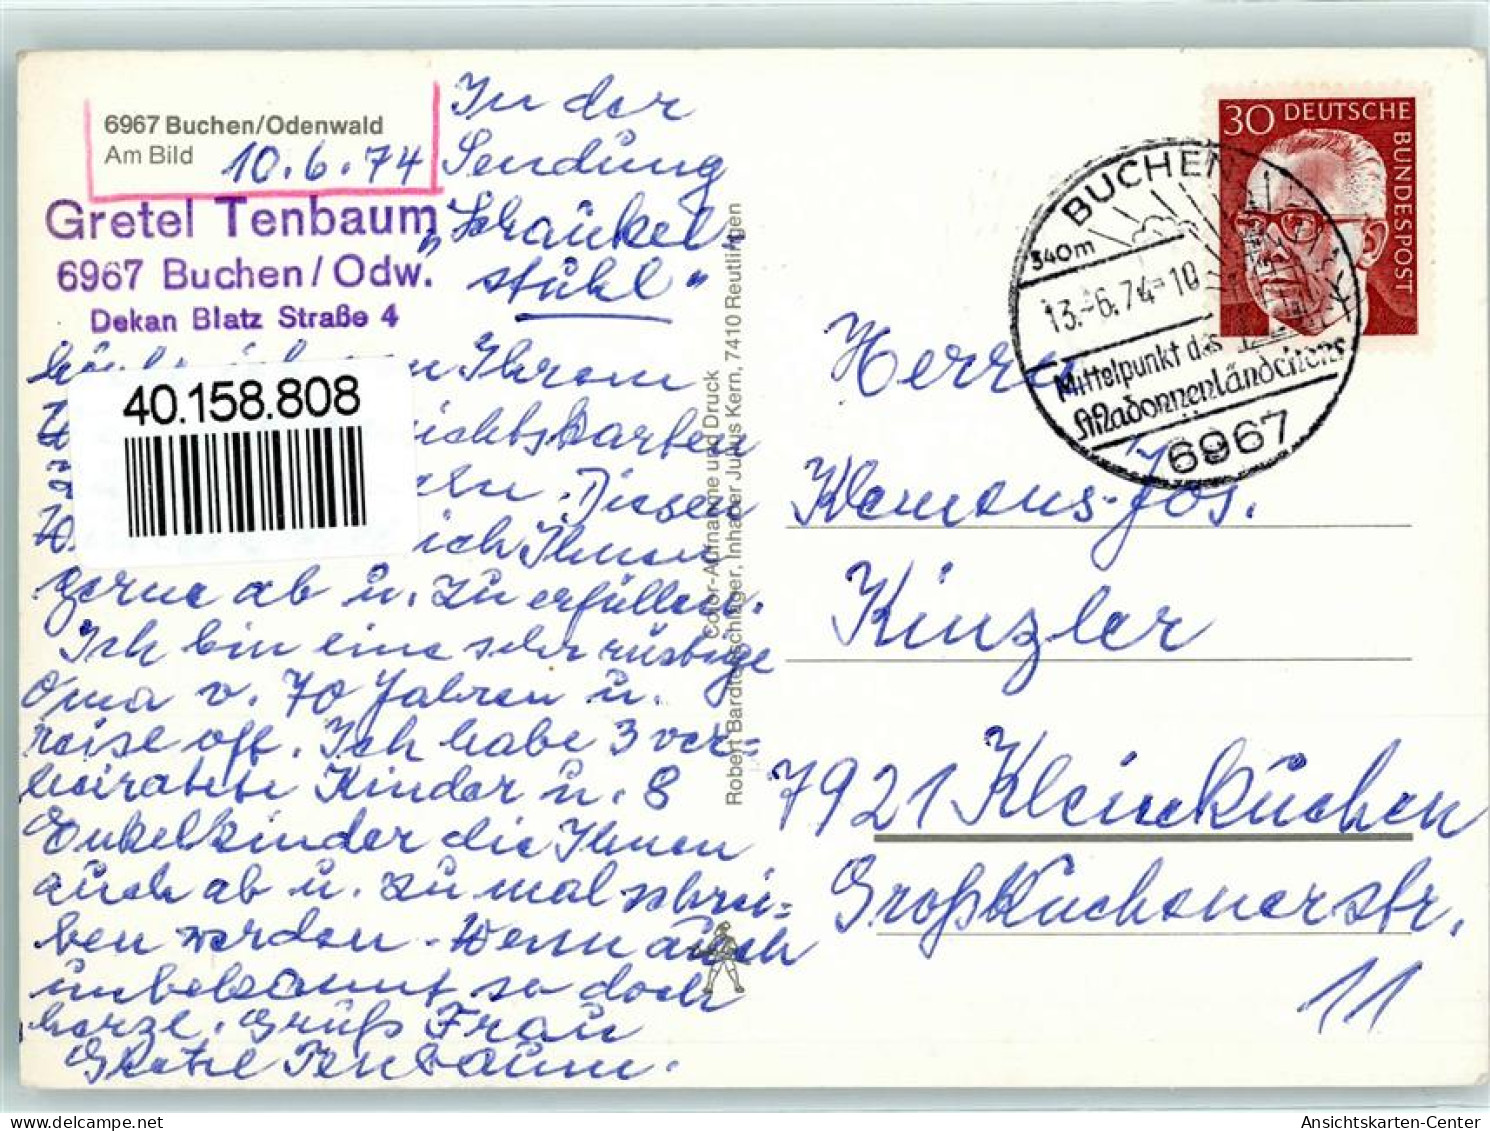 6967 Buchen/Odenwald
Am Bild
10.6.74
Gretel Tenbaum
6967 Buchen/Odw.
Dekan Blatz Straße 4
In der
Sendung
"Schaukel
stuhl"
Ihrem
40.158.808
sichtskarten
Diesen
ich Ihnen
gerne ab u. zu erfüllen.
Ich bin eine sehr rüstige
Oma v. 70 Jahren u.
reise oft. Ich habe 3 ver=
heiratete Kinder u. 8
Enkelkinder die Ihnen
auch ab u. zu mal schrei=
ben werden. Wenn auch
unbekannt so doch
herzl. Grüße Frau
Gretel Tenbaum.
Color-Aufnahme und Druck
Robert Bardtenschlager, Inhaber Julius Kern, 7410 Reutlingen
30 DEUTSCHE
BUNDESPOST
BUCHEN
340m
13.-6.74-10
Mittelpunkt des
Madonnenländchens
6967
Herrn
Klemens-Jos.
Kinzler
7921 Kleinkuchen
Großkuchenerstr.
11
Ansichtskarten-Center